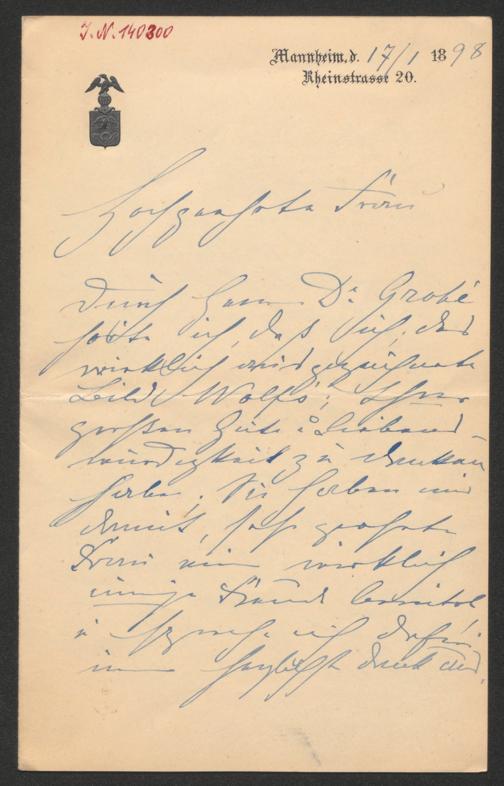 J. N. 140300
Mannheim, d. 17/1 1898
Rheinstrasse 20.
Hochgeehrte Frau
Durch Herrn Dr. Grohé
hörte ich, daß ich, das
wirklich ausgezeichnete
Bild Wolfs, Ihrer
großen Güte u Liebens
würdigkeit zu danken
habe. Sie haben mir
damit, sehr geehrte
Frau eine wirklich
innige Freude bereitet
u spreche ich dafür
herzlichst Dank aus.